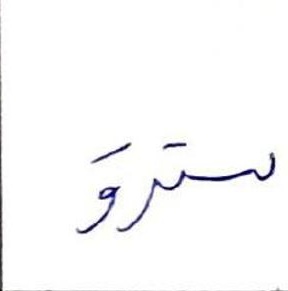 سترو